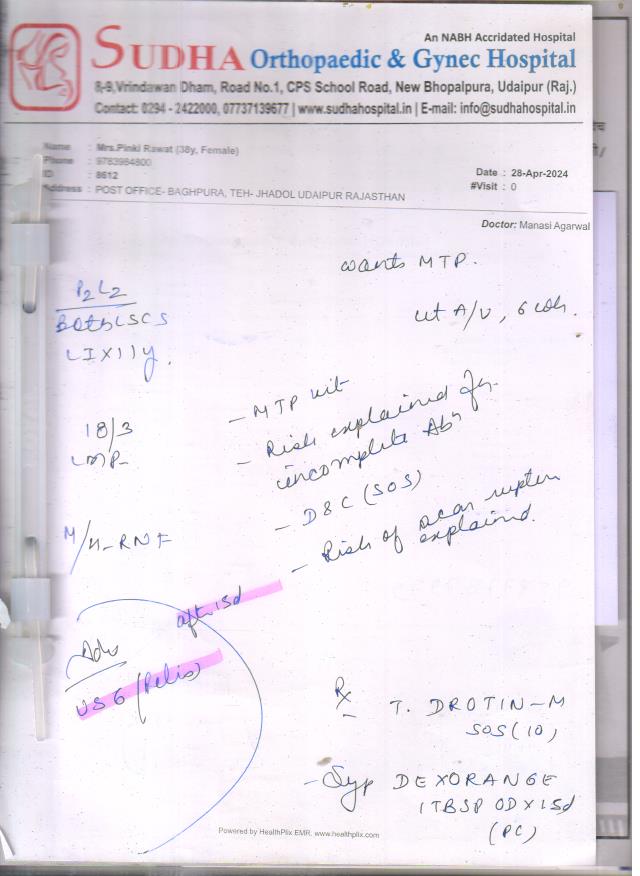 An NABH Accridated Hospital
SUDHA Orthopaedic & Gynec Hospital
8,-9,Vrindawan Dham, Road No.1, CPS School Road, New Bhopalpura, Udaipur (Raj.)
Contact: 0294 - 2422000, 07737139677 | www.sudhahospital.in | E-mail: info@sudhahospital.in
Name : Mrs.Pinki Rawat (38y, Female)
Phone : 9783984800
ID : 8612
Address : POST OFFICE- BAGHPURA, TEH- JHADOL UDAIPUR RAJASTHAN
Date : 28-Apr-2024
#Visit : 0
Doctor: Manasi Agarwal
wants MTP.
P2L2
Both LSCS
LI X 11y.
ut A/V, 6
18/3
LMP-
- MTP kit
- Risk explained
incomplete Abn
- D&C (SOS)
- Risk of scar rupture
explained.
M/H-RNF
after 15d
Adv
USG (Pelvis)
Rx
T. DROTIN-M
SOS (10)
- Syp DEXORANGE
1TBSP OD X 15d
(PC)
Powered by HealthPlix EMR. www.healthplix.com